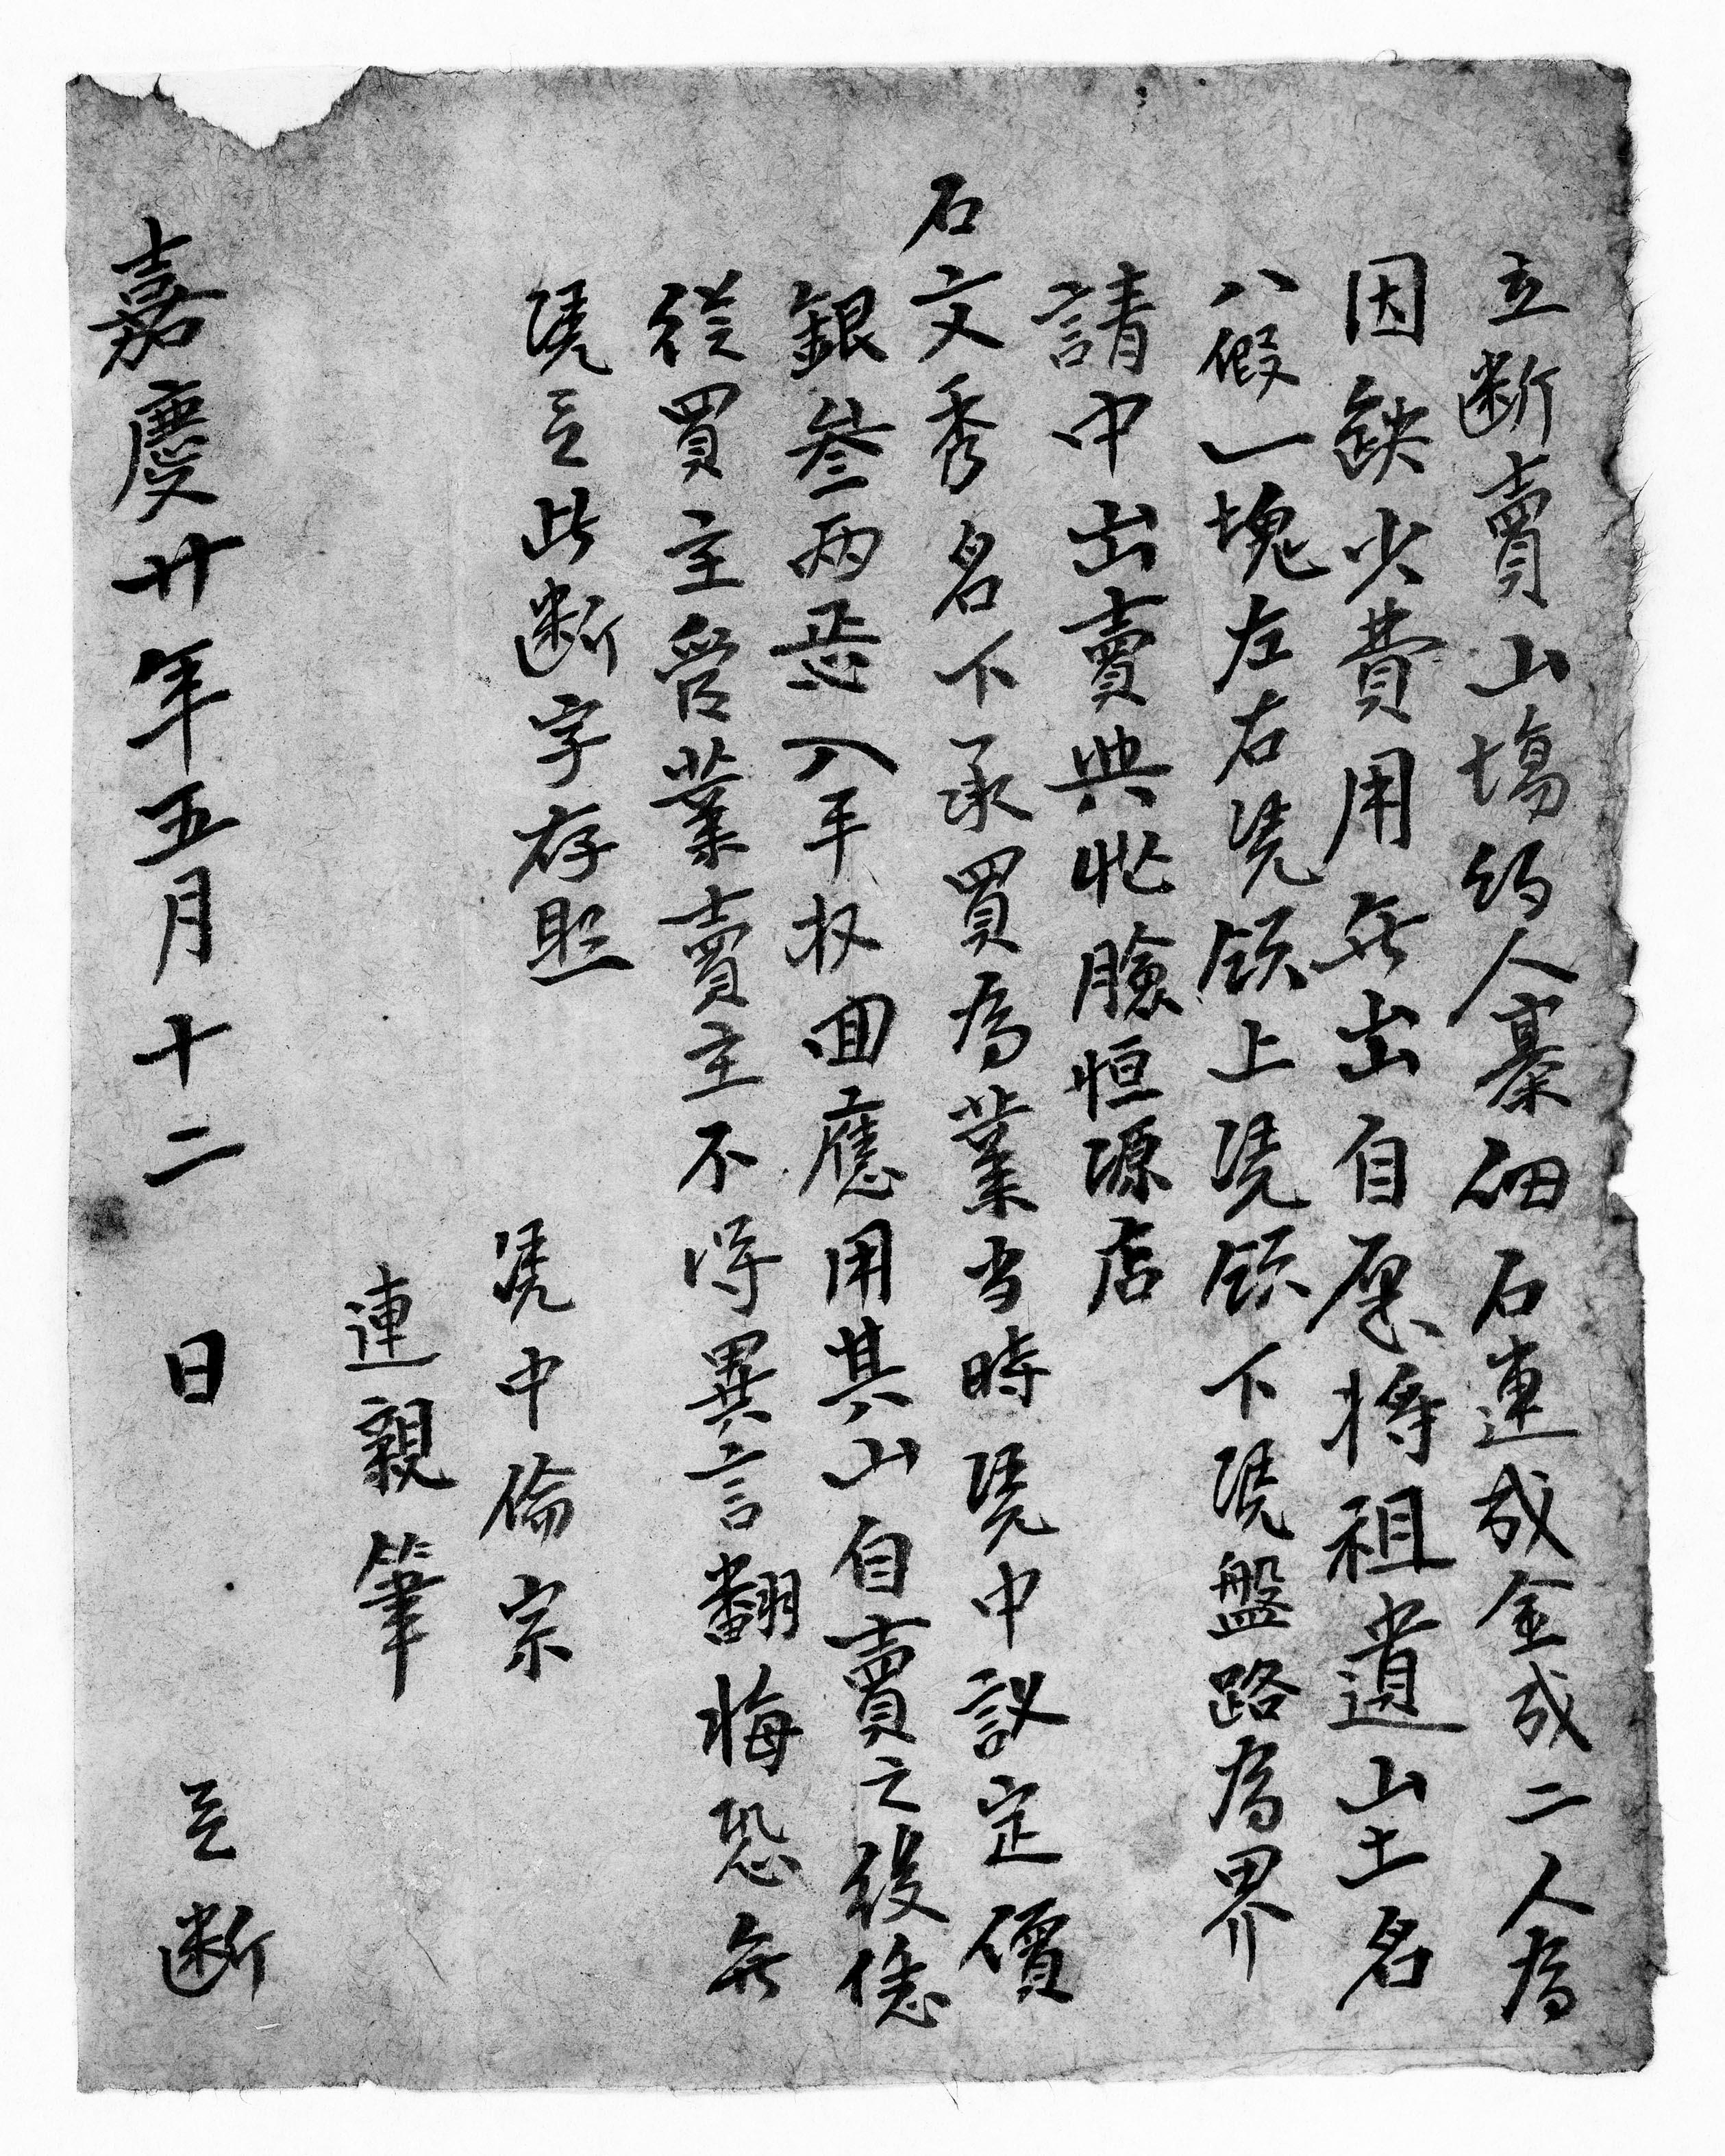 立断賣山塲约人寨細石連成金成二人為
因缺少費用無出自愿将祖遺山土名
八假一塊左右凴領上凴領下凴盤路為界
請中出賣與此臉恒源店
石文秀名下承買為業当時凴中議定價
銀叁两恁入手权回應用其山自賣之後恁
從買主管業賣主不得異言翻悔恐無
凴立此断字存照
凴中倫宗
連親筆
嘉慶廿年五月十二日立断